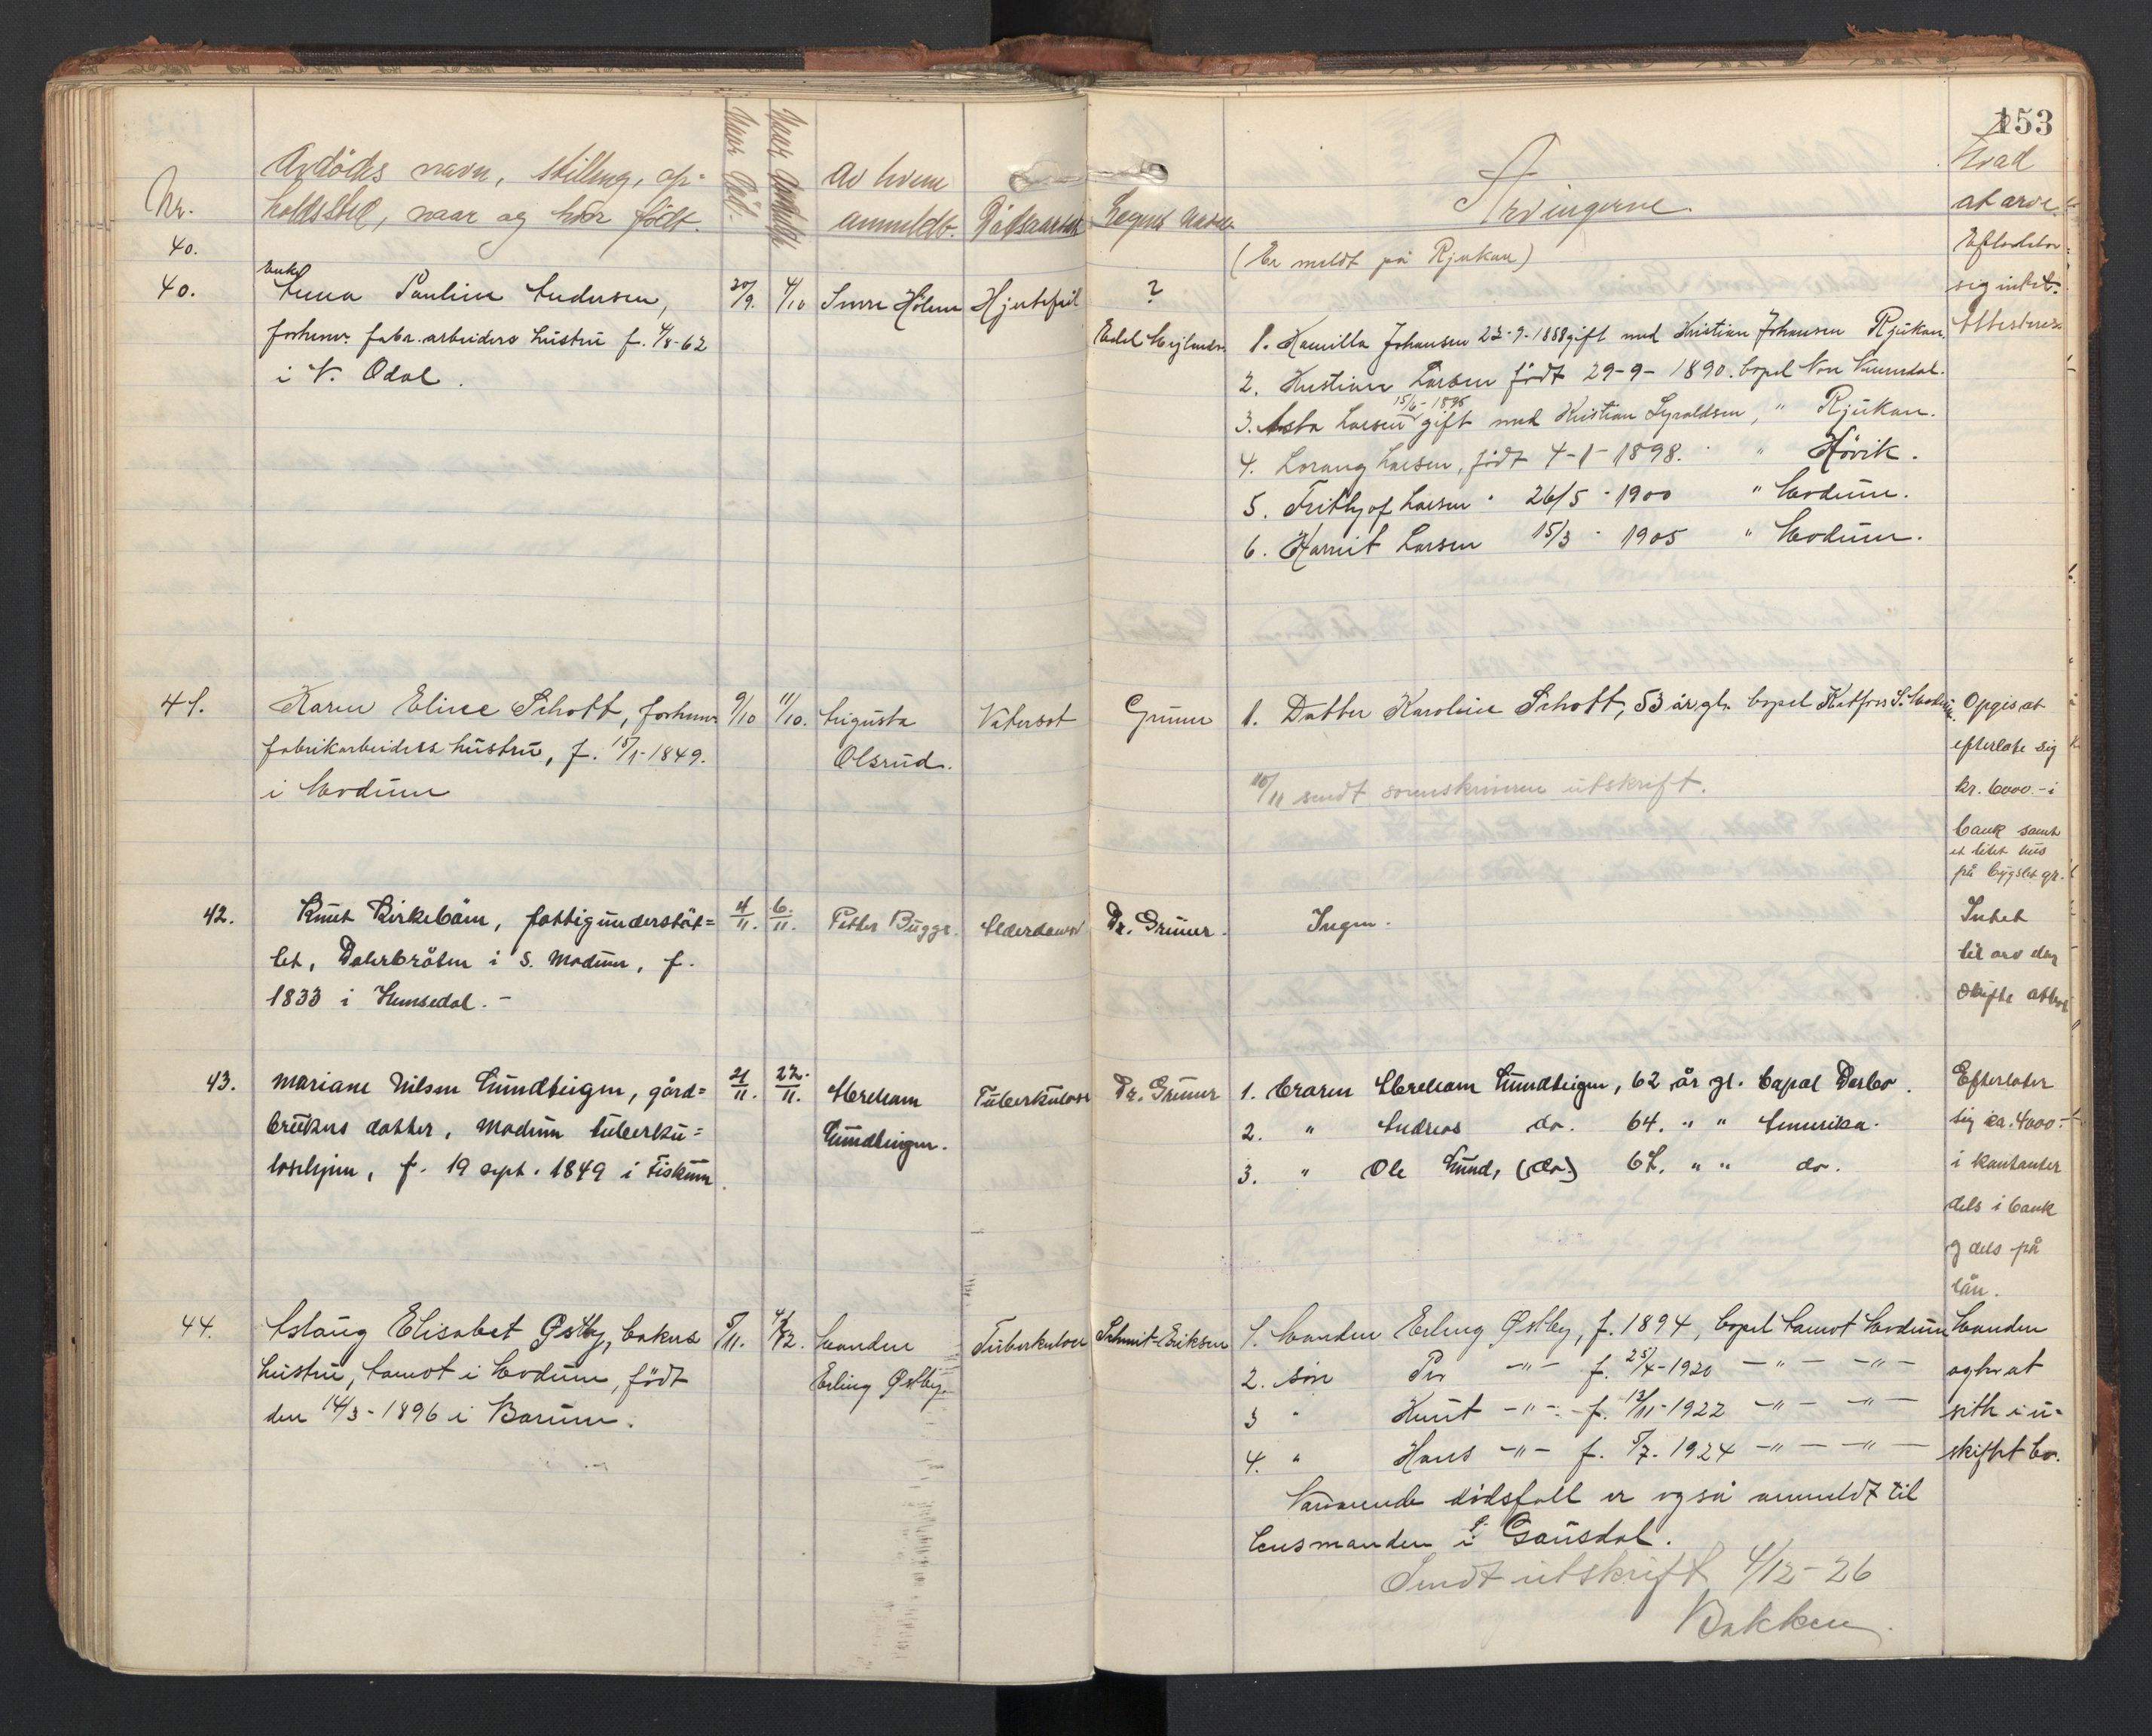 153
Nr.
Avdöds navn, stilling, op-
holdssted, naar og hvor födt.
Naar död.
Naar anmeldt
Av hvem
anmeldt.
Dödsaarsak
Lægens navn
Arvingerne.
Hvad
at arve.
40.
(Er meldt på Rjukan)
40.
Enke
Anna Pauline Andersen,
forhenv. fabr. arbeiders hustru f. 4/8-62
i N. Odal.
20/9.
4/10
Hjertefeil
?
Edel
1. Kamilla Johansen 22-9-1888 gift med Kristian Johansen Rjukan.
2. Kristian Larsen födt 29-9-1890. bopel Nore Numedal.
15/6-1895
3. Asta Larsen gift med Kristian " Rjukan.
4. Lorang Larsen, födt 4-1-1898. " Hövik.
5. Frithjof Larsen " 26/5-1900 " Modum.
6. Harriet Larsen 15/3-1905 " Modum.
Efterlater
sig intet.
41.
Karen Eline Schott, forhenv
fabrikarbeiders hustru, f. 15/1-1849.
i Modum
9/10
11/10.
Augusta
Olsrud.
Vatersot
Grüner
1. Datter Karoline Schott, 53 år gl. bopel Katfoss S. Modum.
10/11 sendt sorenskriveren utskrift.
Opgis at
efterlate sig
kr. 6000.- i
bank samt
et litet hus
på bygslet gr.
42.
Knut Kirkebøen, fattigunderstöt=
tet, i S. Modum, f.
1833 i Hemsedal.-
4/11.
6/11.
Petter Bugge.
Alderdomssv
Dr. Grüner.
Ingen.
Intet
til arv
skifte
43.
Mariane Nilsen Lundteigen, gård=
brukers datter, Modum tuberku=
losehjem, f. 19 sept. 1849 i Fiskum.
21/11.
22/11.
Abraham
Lundteigen.
Tuberkulose
Dr. Grüner
1. Broren Abraham Lundteigen, 62 år gl. bopæl Darbo.
2. " Andreas do. 64. " " Amerika.
3. " Ole Lund, (do.) 67. " " do.
Efterlater
sig ca. 4000.-
i kontanter
dels i bank
og dels på
lån.
44.
Aslaug Elisabet Østby, bakers
hustru, Åmot i Modum, född
den 14/3-1896 i Bærum.
5/11.
4/12.
Manden
Erling Østby.
Tuberkulose
Schmit-Eriksen
1. Manden Erling Østby, f. 1894, bopel Åmot Modum
2. Sön Per -"- f. 25/4-1920 -"- -"-
3 " Knut -"- f. 13/11-1922 -"- -"-
4. " Hans -"- f. 5/7-1924 -"- -"-
Nærværende dödsfall er også anmeldt til
lensmanden i Ö. Gausdal.
Sendt utskrift 4/12-26
Bakken
Manden
agter at
sitte i u-
skiftet bo.